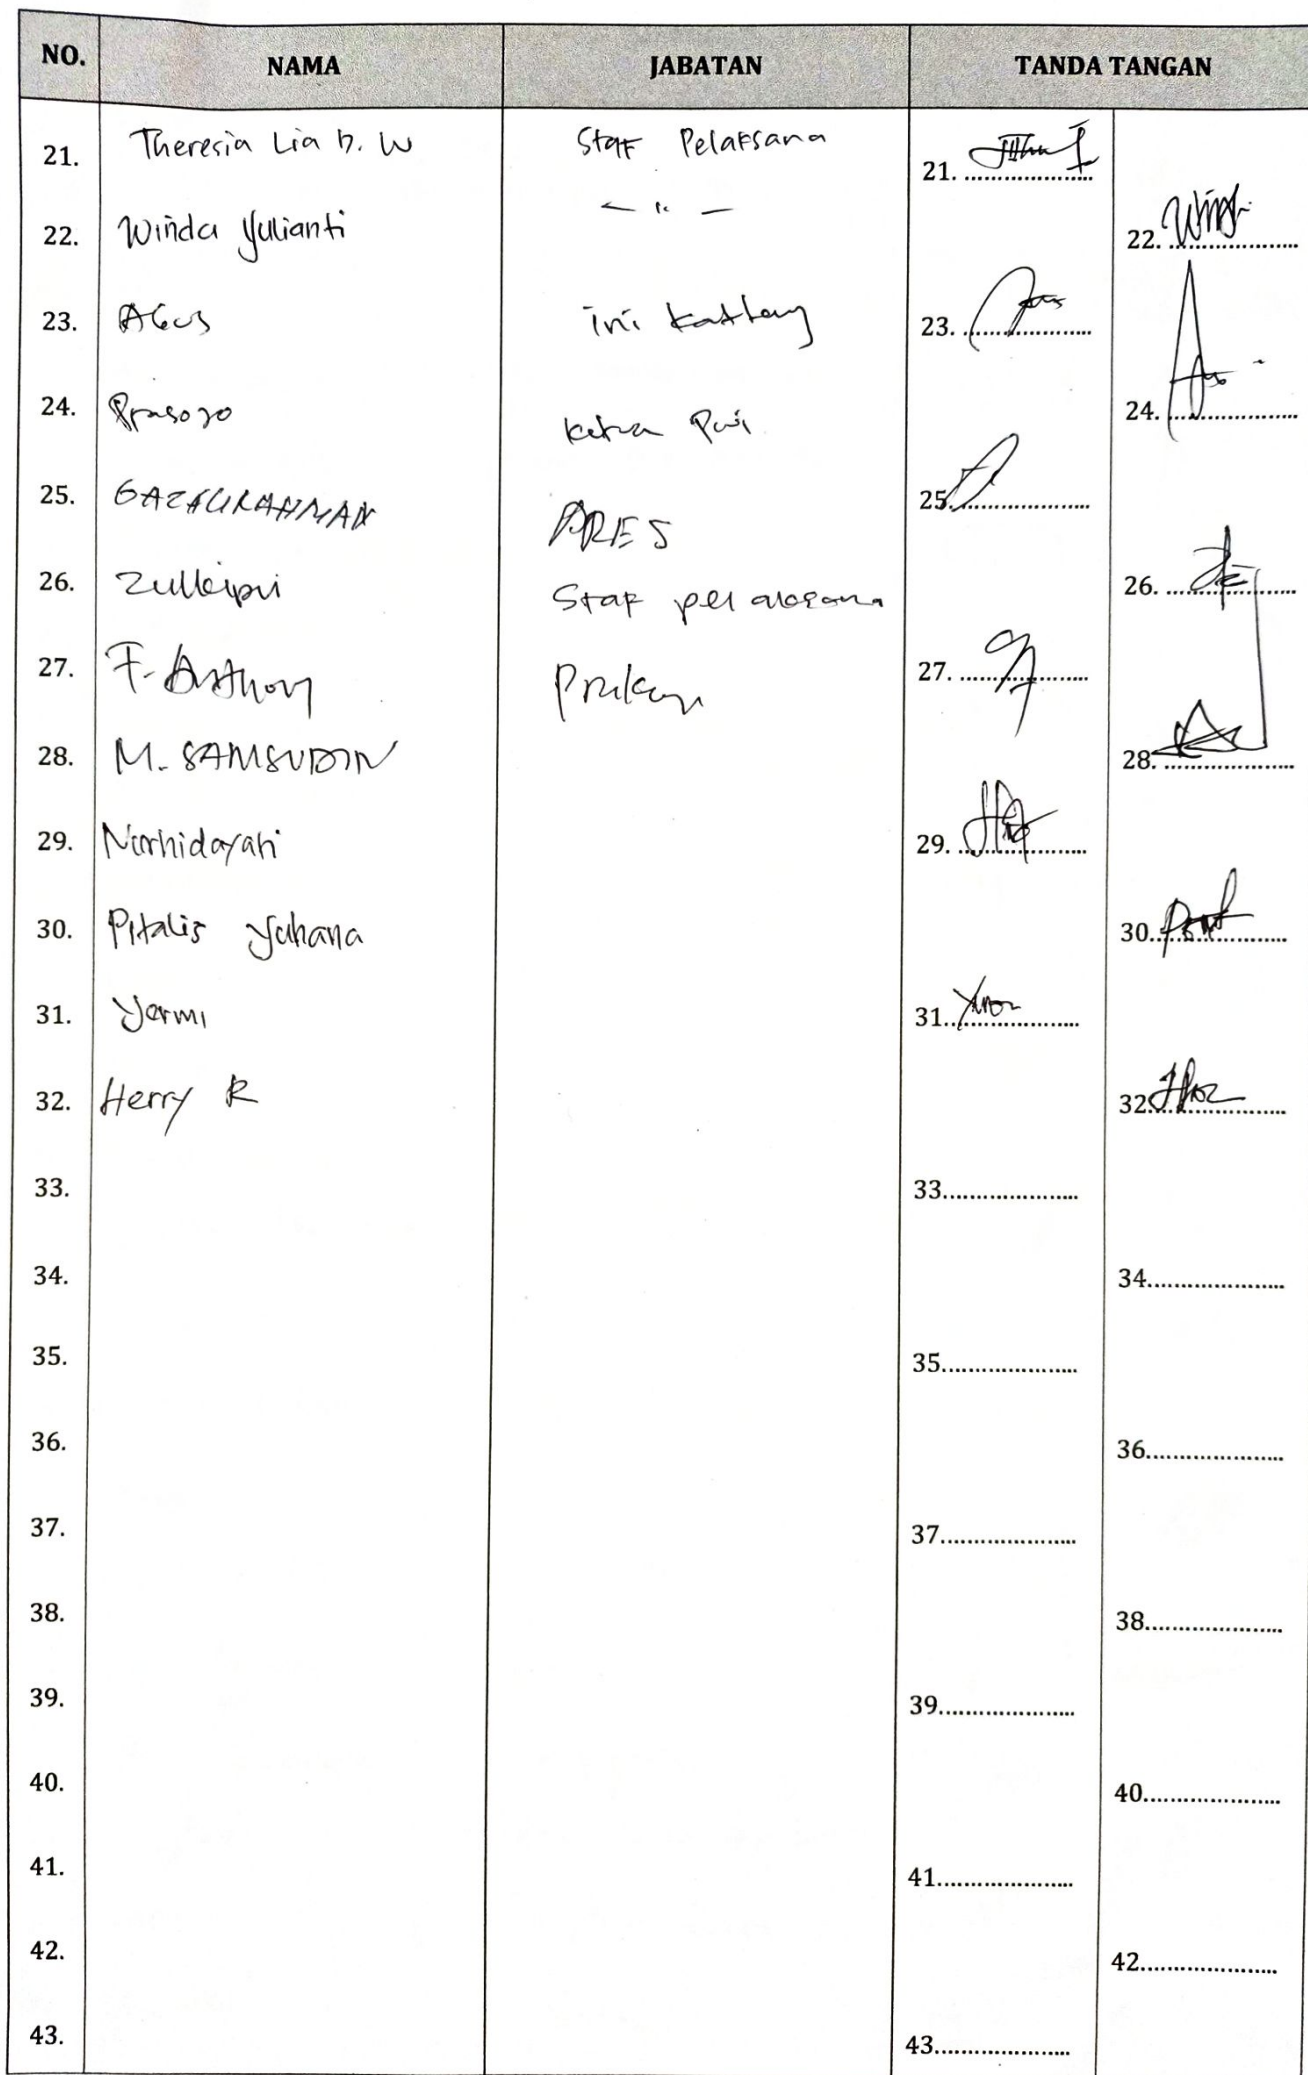 NO. NAMA JABATAN TANDA TANGAN
21. Theresia Lia D. W Staf Pelaksana 21. ....................
22. Winda Yulianti — " — 22. ....................
23. AGUS ini 23. ....................
24. Prasojo Ketua 24. ....................
25. GAZALIRAHMAN 25. ....................
26. Zulkipni Staf pelaksana 26. ....................
27. F. Anthony 27. ....................
28. M. SAMSUDIN 28. ....................
29. Norhidayati 29. ....................
30. Pitalis Yuhana 30. ....................
31. Yermi 31. ....................
32. Herry R 32. ....................
33. 33. ....................
34. 34. ....................
35. 35. ....................
36. 36. ....................
37. 37. ....................
38. 38. ....................
39. 39. ....................
40. 40. ....................
41. 41. ....................
42. 42. ....................
43. 43. ....................